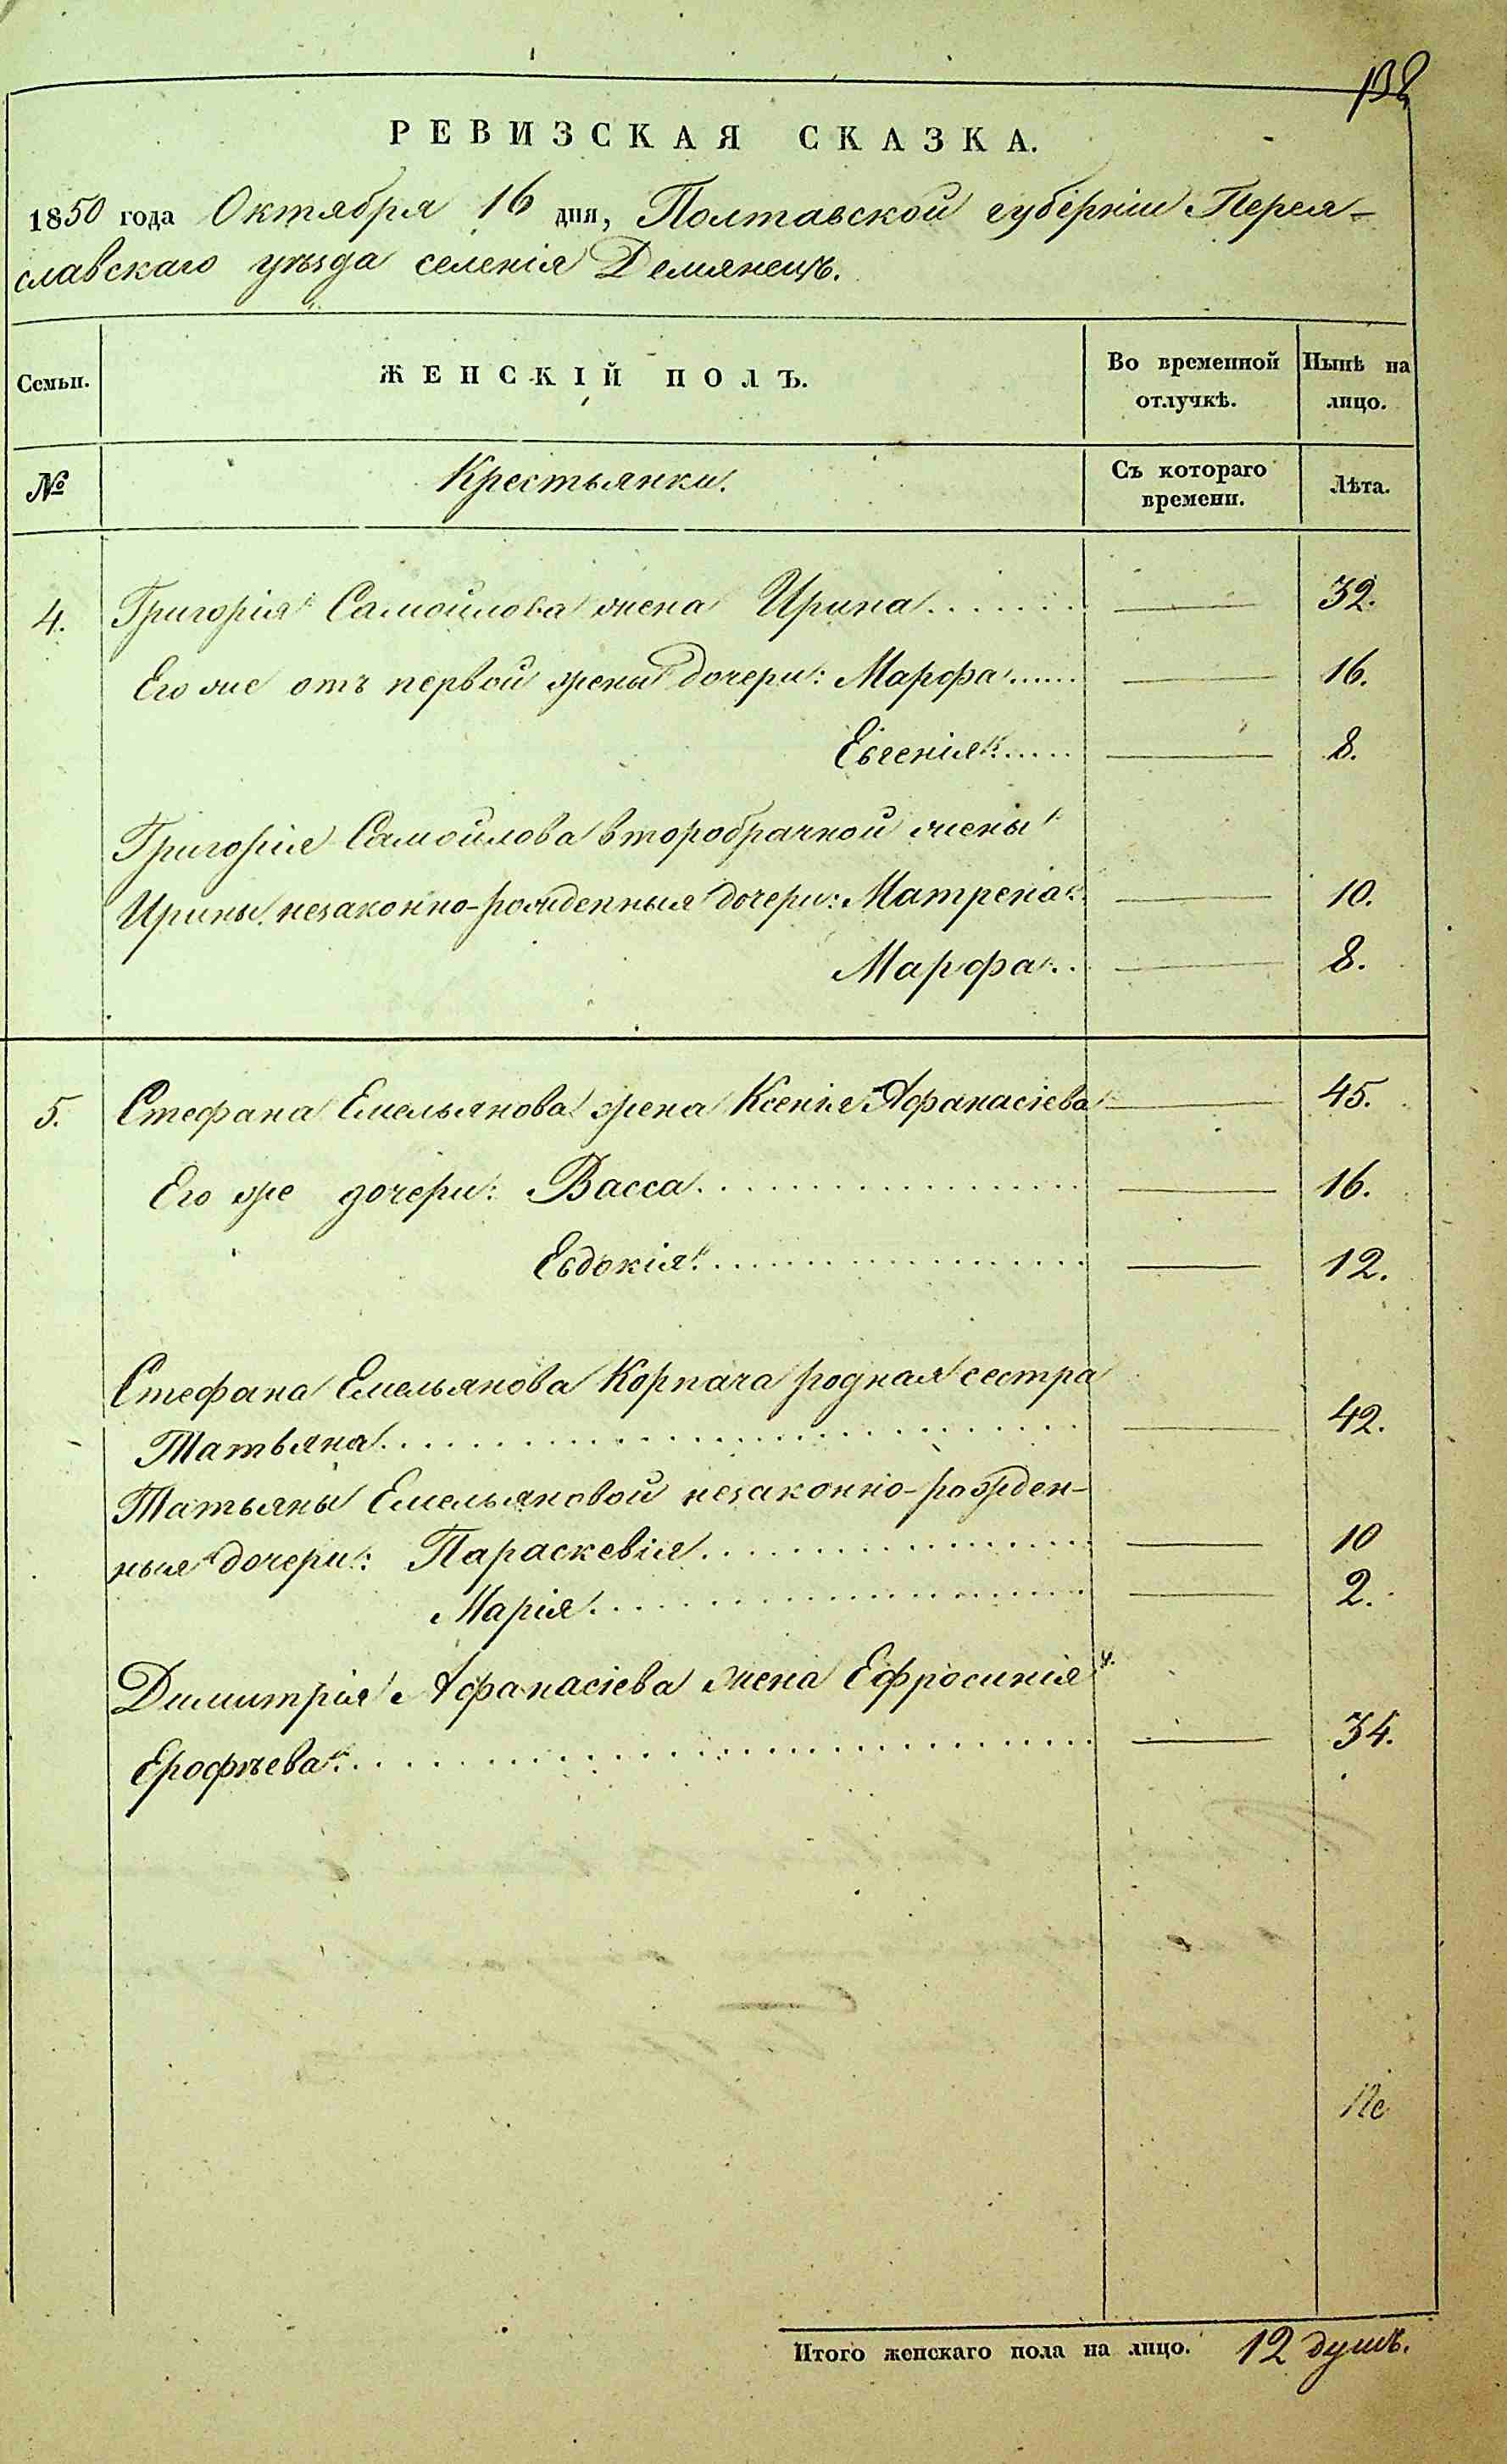 138
РЕВИЗСКАЯ СКАЗКА.
1850 года Октября 16 дня, Полтавской губерніи Перея-
славскаго уѣзда селенія Демянецъ.
Семьи. ЖЕНСКІЙ ПОЛЪ. Во временной отлучкѣ. Нынѣ на лицо.
№ Крестьянки. Съ котораго времени. Лѣта.
4. Григорія Самойлова жена Ирина....... — 32.
Его же отъ первой жены дочери: Марфа...... — 16.
Евгенія...... — 8.
Григорія Самойлова второбрачной жены
Ирины незаконно-рожденныя дочери: Матрена.. — 10.
Марфа... — 8.
5. Стефана Емельянова жена Ксенія Афанасіева — 45.
Его же дочери: Васса.................. — 16.
Евдокія.................. — 12.
Стефана Емельянова Корпача родная сестра
Татьяна........................... — 42.
Татьяны Емельяновой незаконно-рожден-
ныя дочери: Параскевія.................. — 10
Марія....................... — 2.
Димитрія Афанасіева жена Ефросинія
Ерофѣева............................ — 34.
Итого женскаго пола на лицо. 12 душъ.